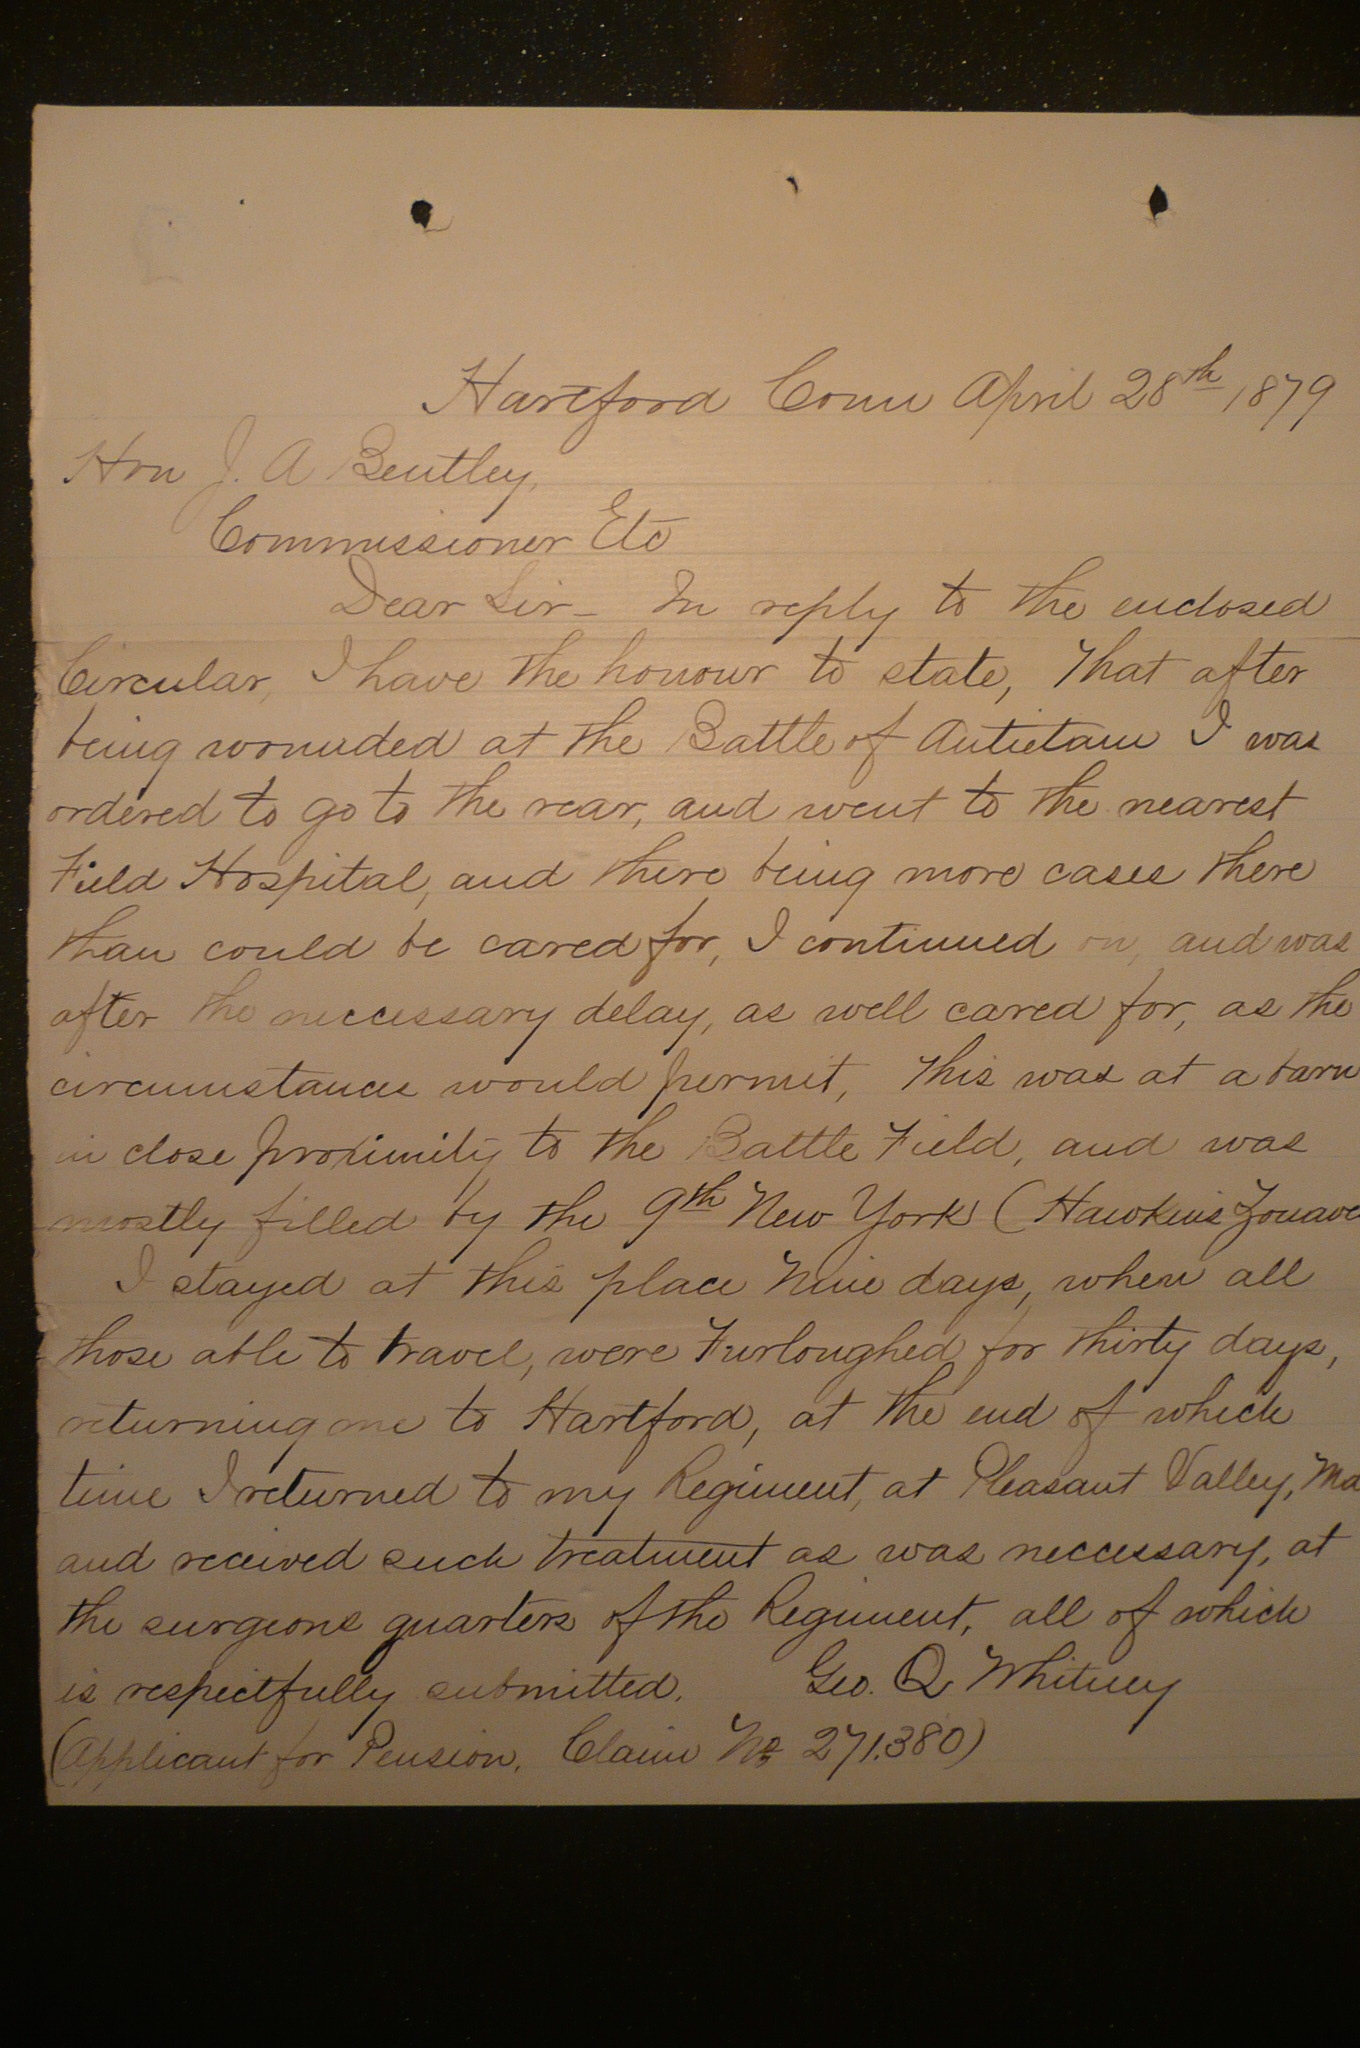 Hartford Conn April 28th 1879
Hon J. A Bentley,
Commissioner Etc
Dear Sir - In reply to the enclosed
Circular, I have the honour to state, That after
being wounded at the Battle of Antietam I was
ordered to go to the rear, and went to the nearest
Field Hospital, and there being more cases there
than could be cared for, I continued on, and was
after the neccessary delay, as well cared for, as the
circumstances would permit, This was at a barn
in close proximity to the Battle Field, and was
mostly filled by the 9th New York (Hawkins Zouave
I stayed at this place Nine days, when all
those able to travel, were Furloughed for thirty days,
returning me to Hartford, at the end of which
time I returned to my Regiment, at Pleasant Valley, Md
and received such treatment as was neccessary, at
the surgeons quarters of the Regiment, all of which
is respectfully submitted. Geo. Q Whitney
(Applicant for Pension. Claim No 271.380)